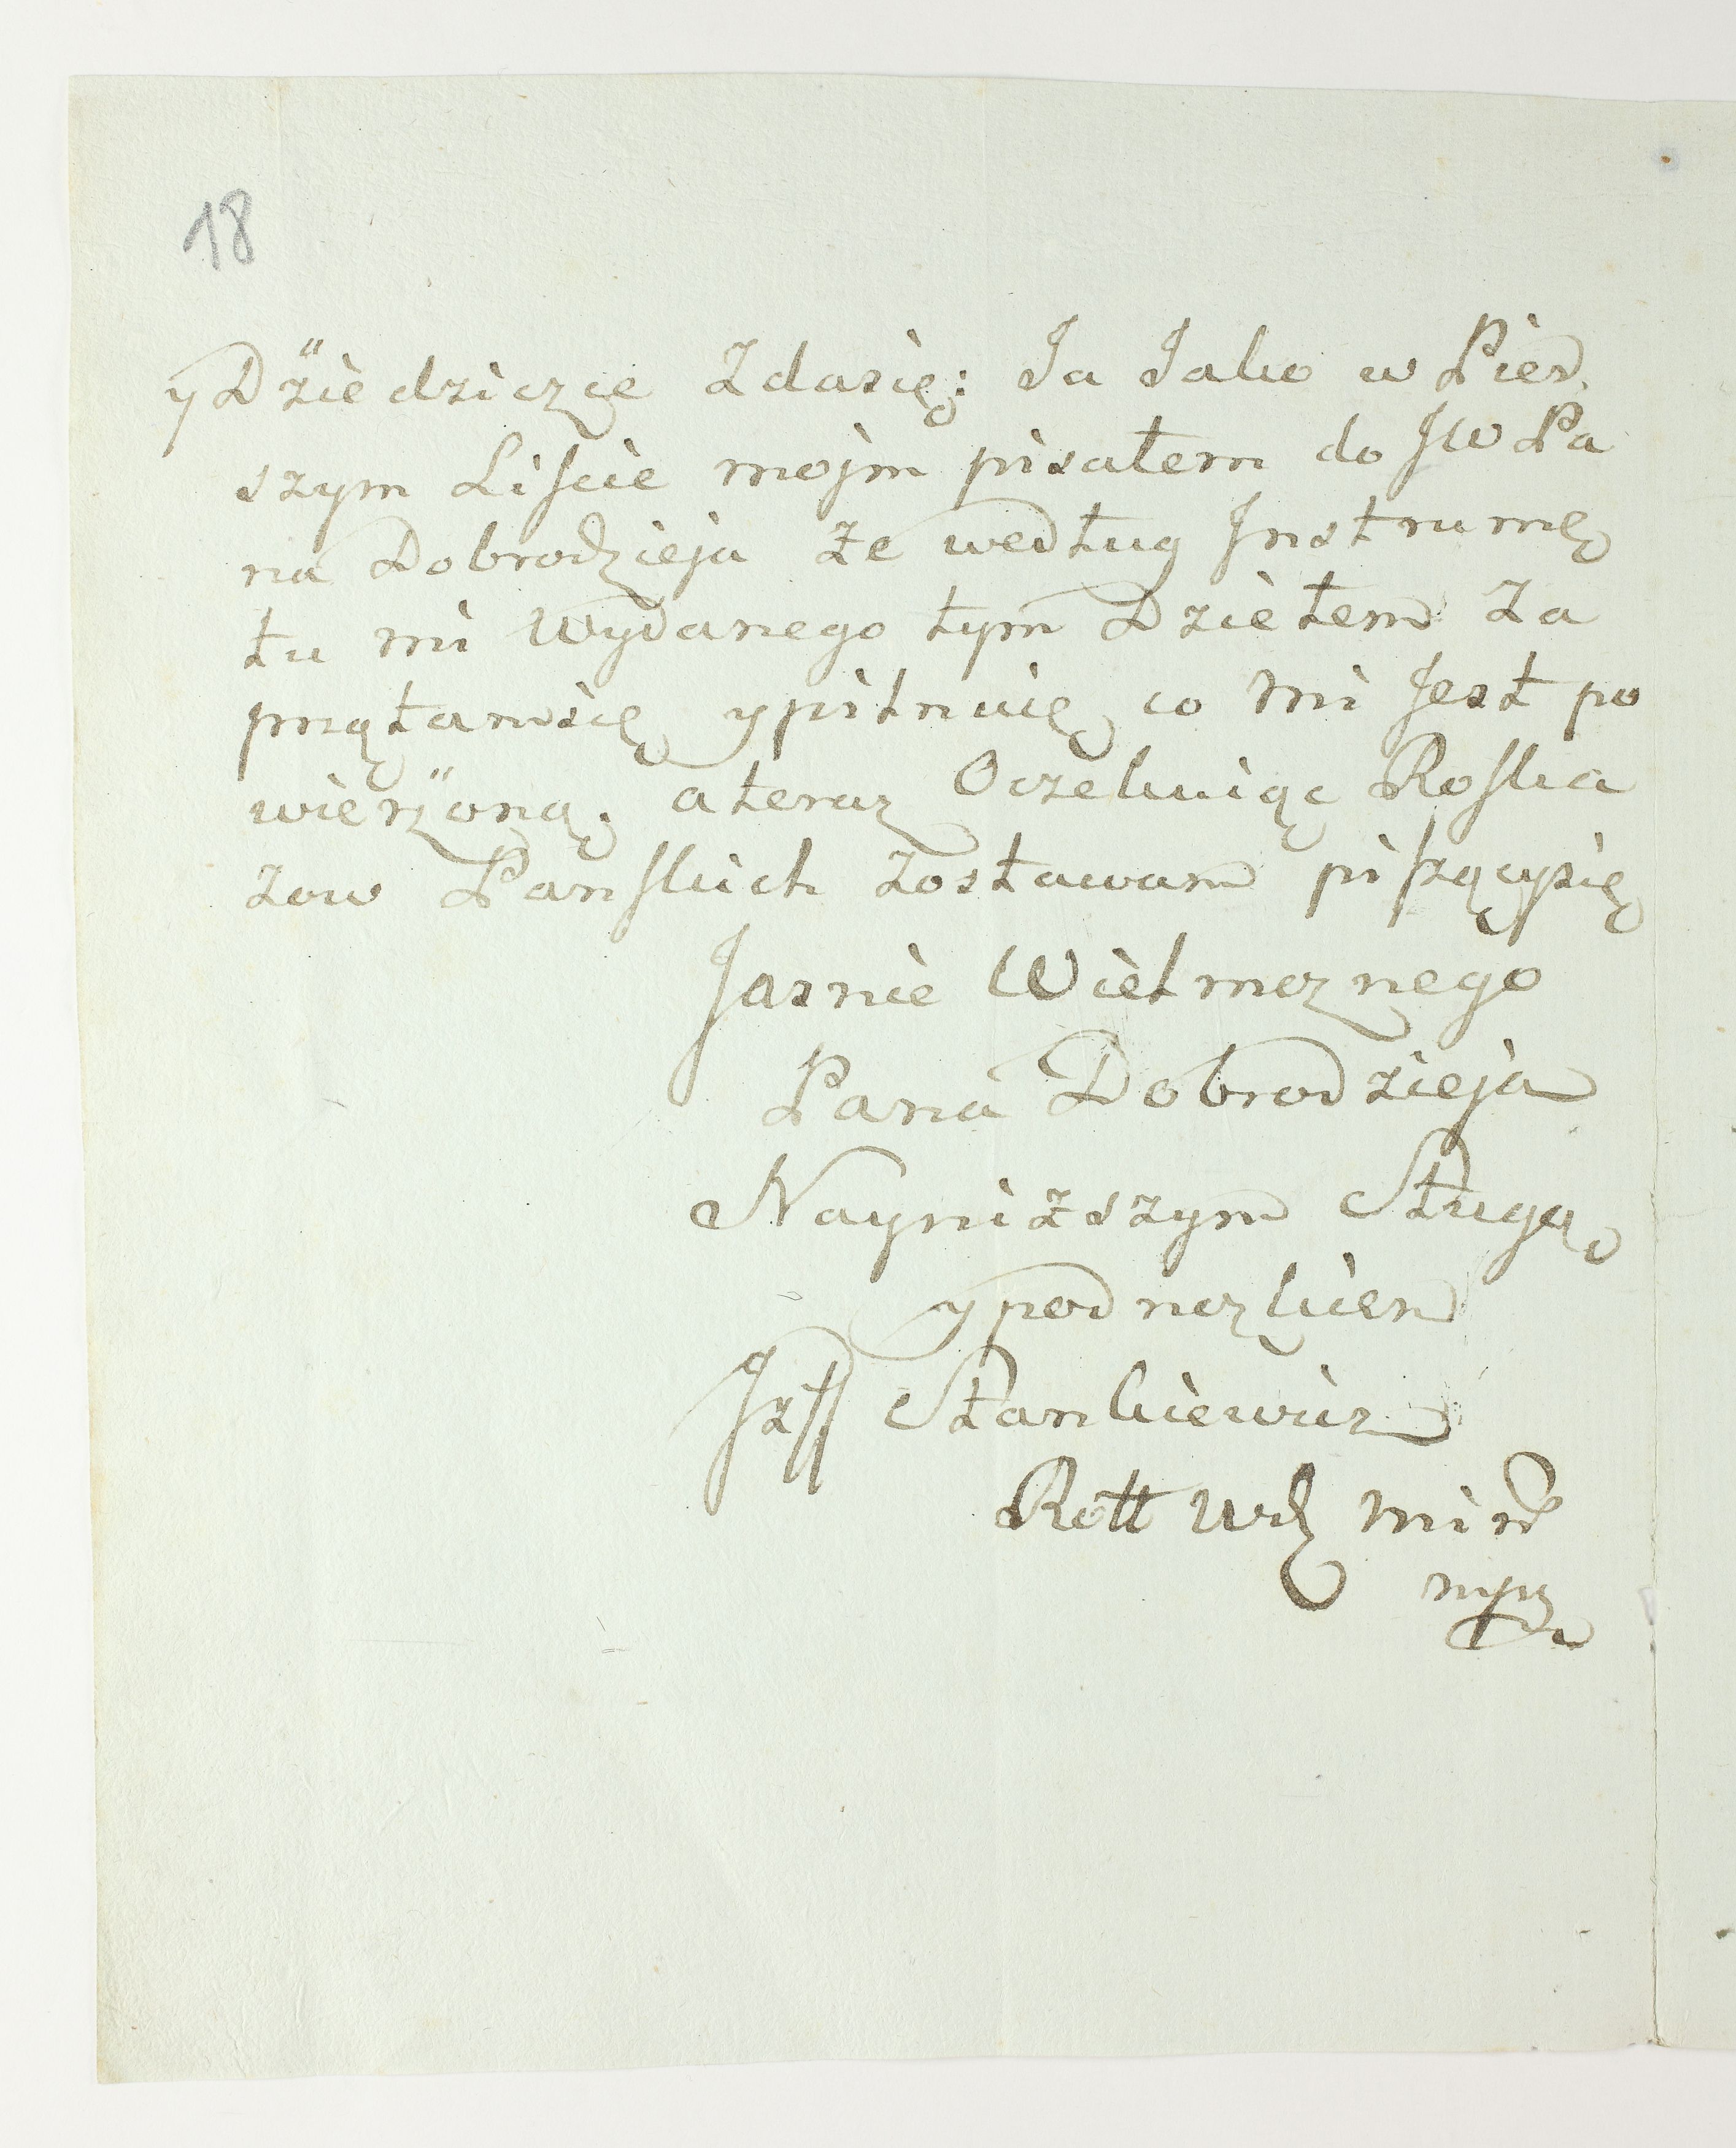 18
y Dziedziczce zdasię: Ja Jako w Pier
szym Liście mojm pisałem do JW Pa
na Dobrodzieja że według Jnstrumę
tu mi wydanego tym Dziełem za
przątamsię y pilnuię co mi Jest po
wierzoną. a teraz Oczekuiąc Roska
zow Panskich zostawam piszącysię
Jasnie Wielmoznego
Pana Dobrodzieja
Nayniższym Sługą
y podnozkiem
Jzff Stankiewicz
Rott
mpr